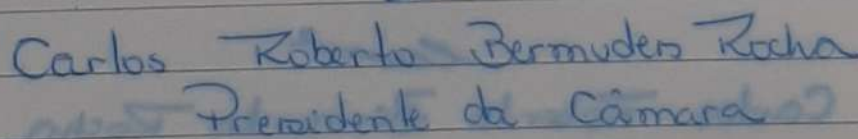 Carlos Roberto Bermudes Rocha
Presidente da Câmara